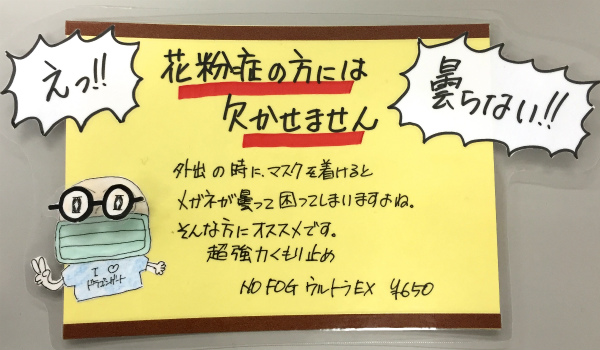 えっ!!
花粉症の方には
欠かせません
曇らない!!
外出の時に、マスクを着けると
メガネが曇って困ってしまいますよね。
そんな方にオススメです。
超強力くもり止め
NO FOG ウルトラEX ¥650
I ♡
ドラゴンゲート